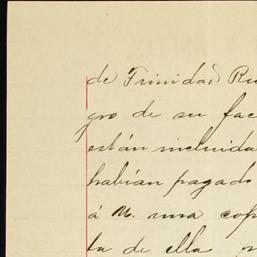 de Trinidad Ru
gro de su fac
están incluida
habían pagado
á M. una cop
la de ella